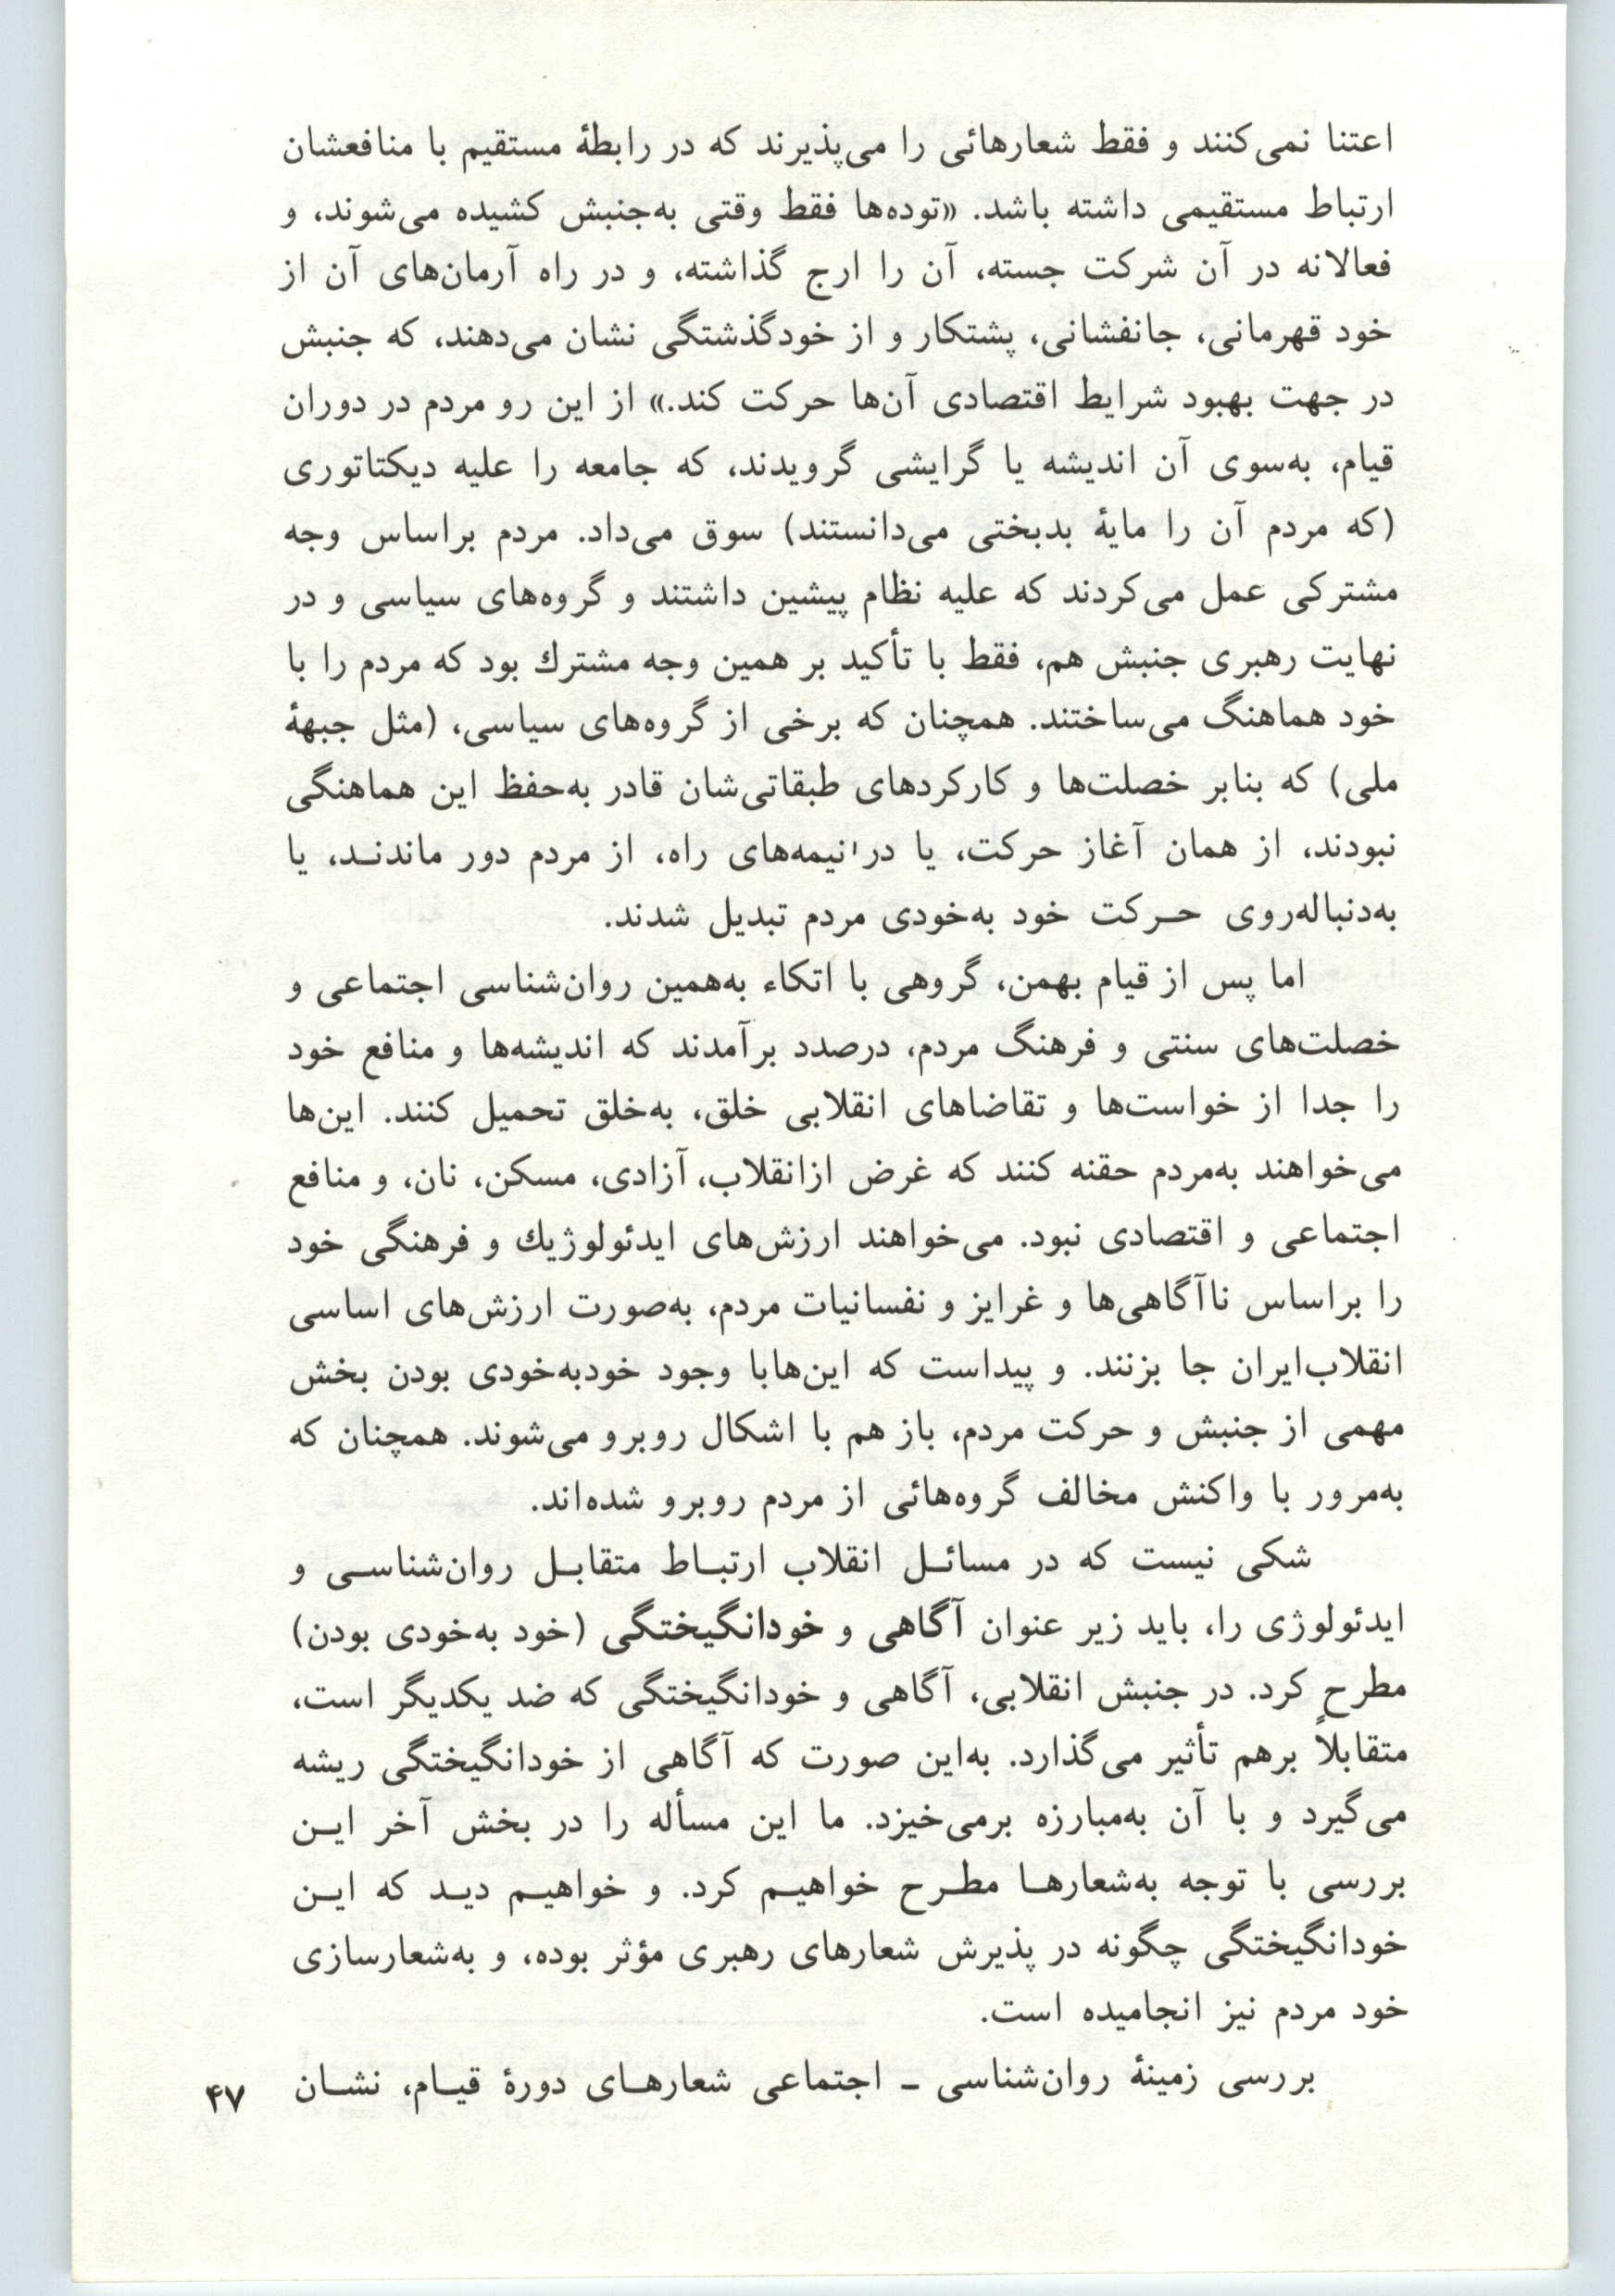 اعتنا نمی‌کنند و فقط شعارهائی را می‌پذیرند که در رابطهٔ مستقیم با منافعشان
ارتباط مستقیمی داشته باشد. «توده‌ها فقط وقتی به‌جنبش کشیده می‌شوند، و
فعالانه در آن شرکت جسته، آن را ارج گذاشته، و در راه آرمان‌های آن از
خود قهرمانی، جانفشانی، پشتکار و از خودگذشتگی نشان می‌دهند، که جنبش
در جهت بهبود شرایط اقتصادی آن‌ها حرکت کند.» از این رو مردم در دوران
قیام، به‌سوی آن اندیشه یا گرایشی گرویدند، که جامعه را علیه دیکتاتوری
(که مردم آن را مایهٔ بدبختی می‌دانستند) سوق می‌داد. مردم براساس وجه
مشترکی عمل می‌کردند که علیه نظام پیشین داشتند و گروه‌های سیاسی و در
نهایت رهبری جنبش هم، فقط با تأکید بر همین وجه مشترك بود که مردم را با
خود هماهنگ می‌ساختند. همچنان که برخی از گروه‌های سیاسی، (مثل جبههٔ
ملی) که بنابر خصلت‌ها و کارکردهای طبقاتی‌شان قادر به‌حفظ این هماهنگی
نبودند، از همان آغاز حرکت، یا در نیمه‌های راه، از مردم دور ماندنـد، یا
به‌دنباله‌روی حـرکت خود به‌خودی مردم تبدیل شدند.
اما پس از قیام بهمن، گروهی با اتکاء به‌همین روان‌شناسی اجتماعی و
خصلت‌های سنتی و فرهنگ مردم، درصدد برآمدند که اندیشه‌ها و منافع خود
را جدا از خواست‌ها و تقاضاهای انقلابی خلق، به‌خلق تحمیل کنند. این‌ها
می‌خواهند به‌مردم حقنه کنند که غرض ازانقلاب، آزادی، مسکن، نان، و منافع
اجتماعی و اقتصادی نبود. می‌خواهند ارزش‌های ایدئولوژیك و فرهنگی خود
را براساس ناآگاهی‌ها و غرایز و نفسانیات مردم، به‌صورت ارزش‌های اساسی
انقلاب‌ایران جا بزنند. و پیداست که این‌هابا وجود خودبه‌خودی بودن بخش
مهمی از جنبش و حرکت مردم، باز هم با اشکال روبرو می‌شوند. همچنان که
به‌مرور با واکنش مخالف گروه‌هائی از مردم روبرو شده‌اند.
شکی نیست که در مسائـل انقلاب ارتبـاط متقابـل روان‌شناسـی و
ایدئولوژی را، باید زیر عنوان آگاهی و خودانگیختگی (خود به‌خودی بودن)
مطرح کرد. در جنبش انقلابی، آگاهی و خودانگیختگی که ضد یکدیگر است،
متقابلاً برهم تأثیر می‌گذارد. به‌این صورت که آگاهی از خودانگیختگی ریشه
می‌گیرد و با آن به‌مبارزه برمی‌خیزد. ما این مسأله را در بخش آخر ایـن
بررسی با توجه به‌شعارهـا مطـرح خواهیـم کرد. و خواهیـم دیـد که ایـن
خودانگیختگی چگونه در پذیرش شعارهای رهبری مؤثر بوده، و به‌شعارسازی
خود مردم نیز انجامیده است.
بررسی زمینهٔ روان‌شناسی ـ اجتماعی شعارهـای دورهٔ قیـام، نشـان
۴۷